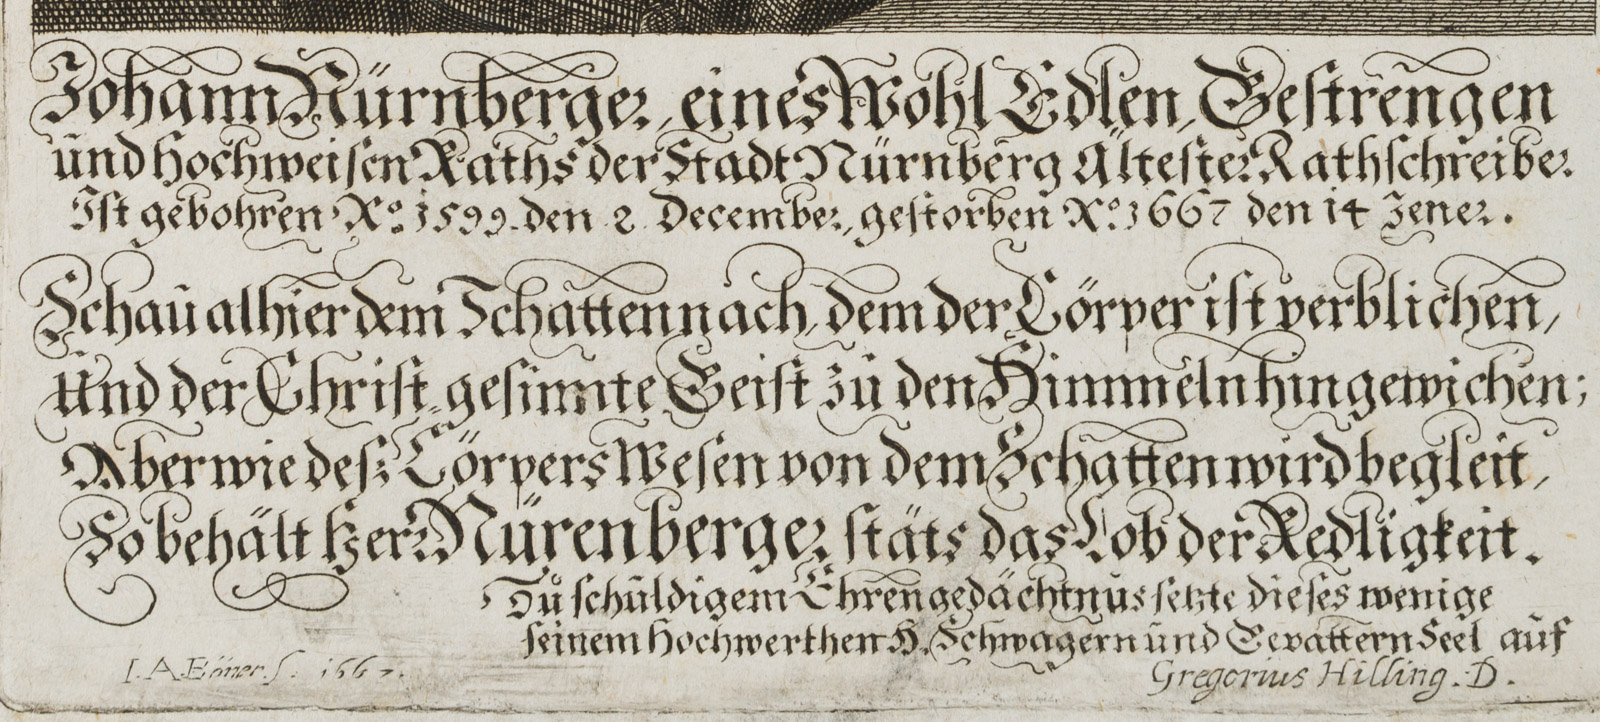 Johann Nürnberger, eines Wohl Edlen, Gestrengen
und Hochweisen Raths der Stadt Nürnberg Ältester Rathschreiber.
Ist gebohren Aº. 1599. den 2. December, gestorben Aº. 1667 den 14 Jener.
Schau alhier dem Schatten nach, dem der Cörper ist verblichen,
Und der Christ-gesinnte Geist zu den Himmeln hingewichen;
Aber wie deß Cörpers Wesen von dem Schatten wird begleit,
So behält Herr Nürenberger stäts das Lob der Redligkeit.
Zu schuldigem Ehrengedächtnus setzte dieses wenige
seinem Hochwerthen H. Schwagern und Gevattern Seel. auf
I. A. Böner. f. 1667.
Gregorius Hilling. D.